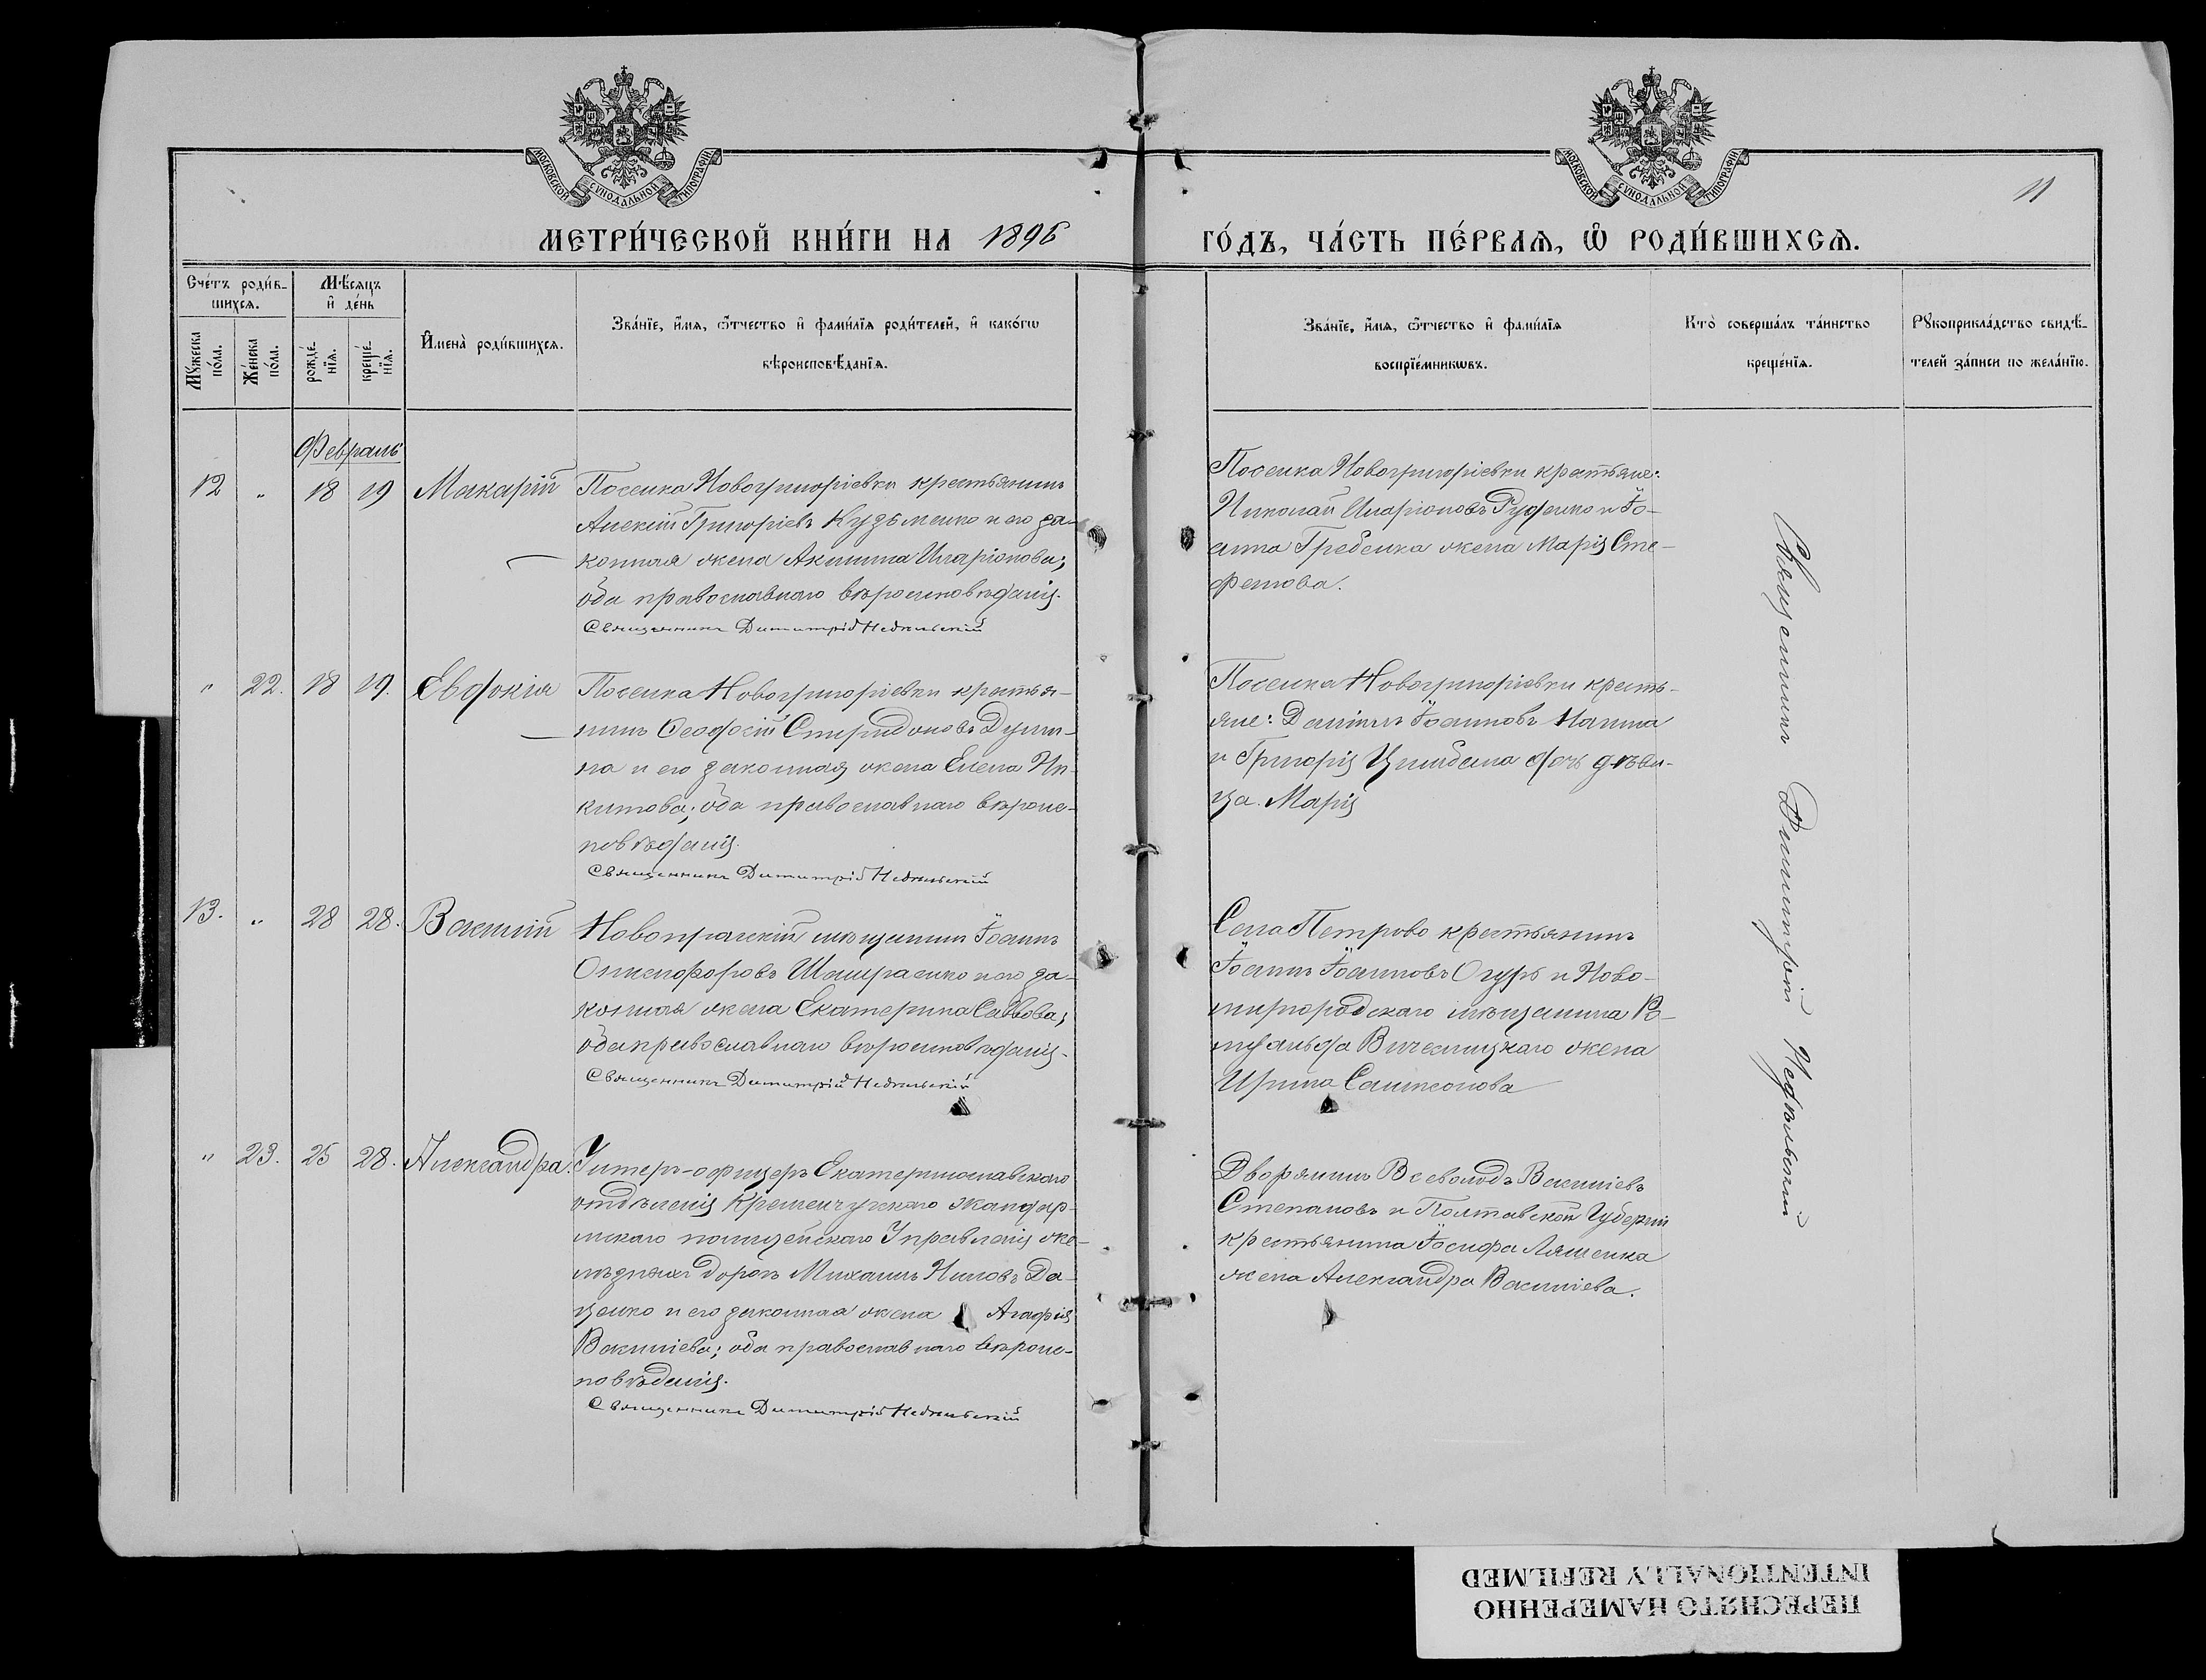 МОСКОВСКОЙ СѴНОДАЛЬНОЙ ТИПОГРАФІИ
МОСКОВСКОЙ СѴНОДАЛЬНОЙ ТИПОГРАФІИ
11
МЕТРИ́ЧЕСКОЙ КНИ́ГИ НА 1896 ГО́ДЪ, ЧА́СТЬ ПЕ́РВАѦ, Ѽ РОДИ́ВШИХСѦ.
Сче́тъ роди́в-
шихсѧ.
Мѣ́сѧцъ
и҆ де́нь
Мꙋжеска по́ла.
Же́нска по́ла.
рожде́-нїѧ.
креще́-нїѧ.
И҆мена̀ роди́вшихсѧ.
Зва́нїе, и҆́мѧ, ѻ҆́тчество и҆ фами́лїѧ роди́телей, и҆ како́гѡ
вѣроисповѣ́данїѧ.
Зва́нїе, и҆́мѧ, ѻ҆́тчество и҆ фами́лїѧ
воспрїе́мникѡвъ.
Кто̀ соверша́лъ та́инство
креще́нїѧ.
Рꙋкоприкла́дство свидѣ́-
телей за́писи по жела́нїю.
Февраль
12 " 18 19 Макарій
Поселка Новогригоріевки крестьянинъ
Алексій Григоріевъ Кузьменко и его за-
конная жена Акилина Иларіонова;
оба православнаго вѣроисповѣданія.
Священникъ Димитрій Недѣльскій
Поселка Новогригоріевки крестьяне:
Николай Иларіоновъ Руденко и Іо-
анна Гребенка жена Марія Сте-
фанова.
" 22. 18 19. Евдокія
Поселка Новогригоріевки крестья-
нинъ Ѳеодосій Спиридоновъ
и его законная жена Елена Ни-
китова; оба православнаго вѣроис-
повѣданія.
Священникъ Димитрій Недѣльскій
Поселка Новогригоріевки кресть-
яне: Даніилъ Іоанновъ
и Григорія Цимбала дочь дѣви-
ца Марія
13. " 28 28. Василій
Новопражскій мѣщанинъ Іоаннъ
Онисифоровъ и его за-
конная жена Екатерина Саввова;
оба православнаго вѣроисповѣданія.
Священникъ Димитрій Недѣльскій
Села Петрово крестьянинъ
Іоаннъ Іоанновъ Огурь и Ново-
миргородскаго мѣщанина Ро-
муальда жена
Ирина Сампсонова
" 23. 25 28. Александра.
Унтеръ-офицеръ Екатеринославскаго
отдѣленія Кременчугскаго жандар-
мскаго полицейскаго Управленія же-
лѣзныхъ дорогъ Михаилъ Ниловъ Да-
ценко и его законная жена Агафія
Василіева; оба православнаго вѣроис-
повѣданія.
Священникъ Димитрій Недѣльскій
Дворянинъ Всеволодъ Василіевъ
Степановъ и Полтавской Губерніи
крестьянина Іосифа Ляшенка
жена Александра Василіева.
Священникъ Димитрій Недѣльскій
ПЕРЕСНЯТО НАМЕРЕННО
INTENTIONALLY REFILMED